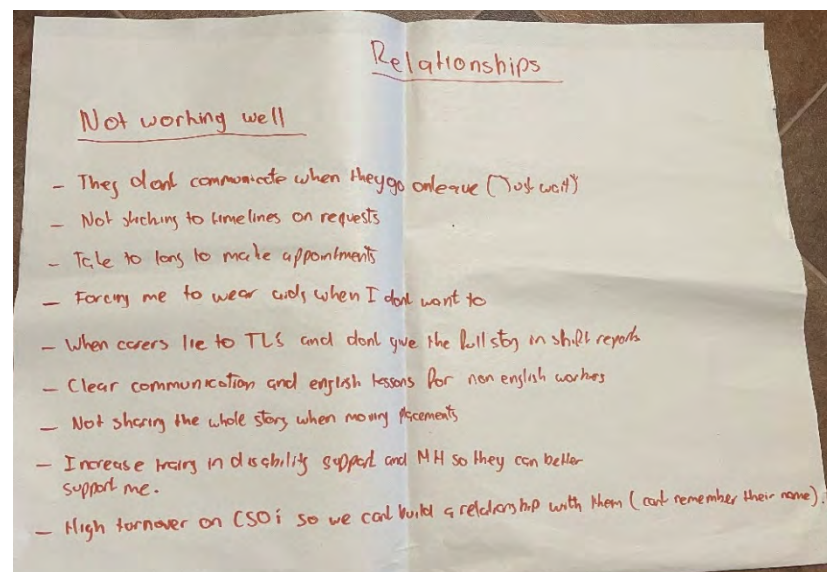 Relationships
Not working well
- They dont communicate when they go on leave (Just wait)
- Not sticking to timelines on requests
- Take to long to make appointments
- Forcing me to wear aids when I dont want to
- When carers lie to TL's and dont give the full story in shift reports
- Clear communication and english lessons for non english workers
- Not sharing the whole story when moving placements
- Increase traing in disability support and MH so they can better
support me.
- High turnover on CSO's so we cant build a relationship with them (cant remember their name).